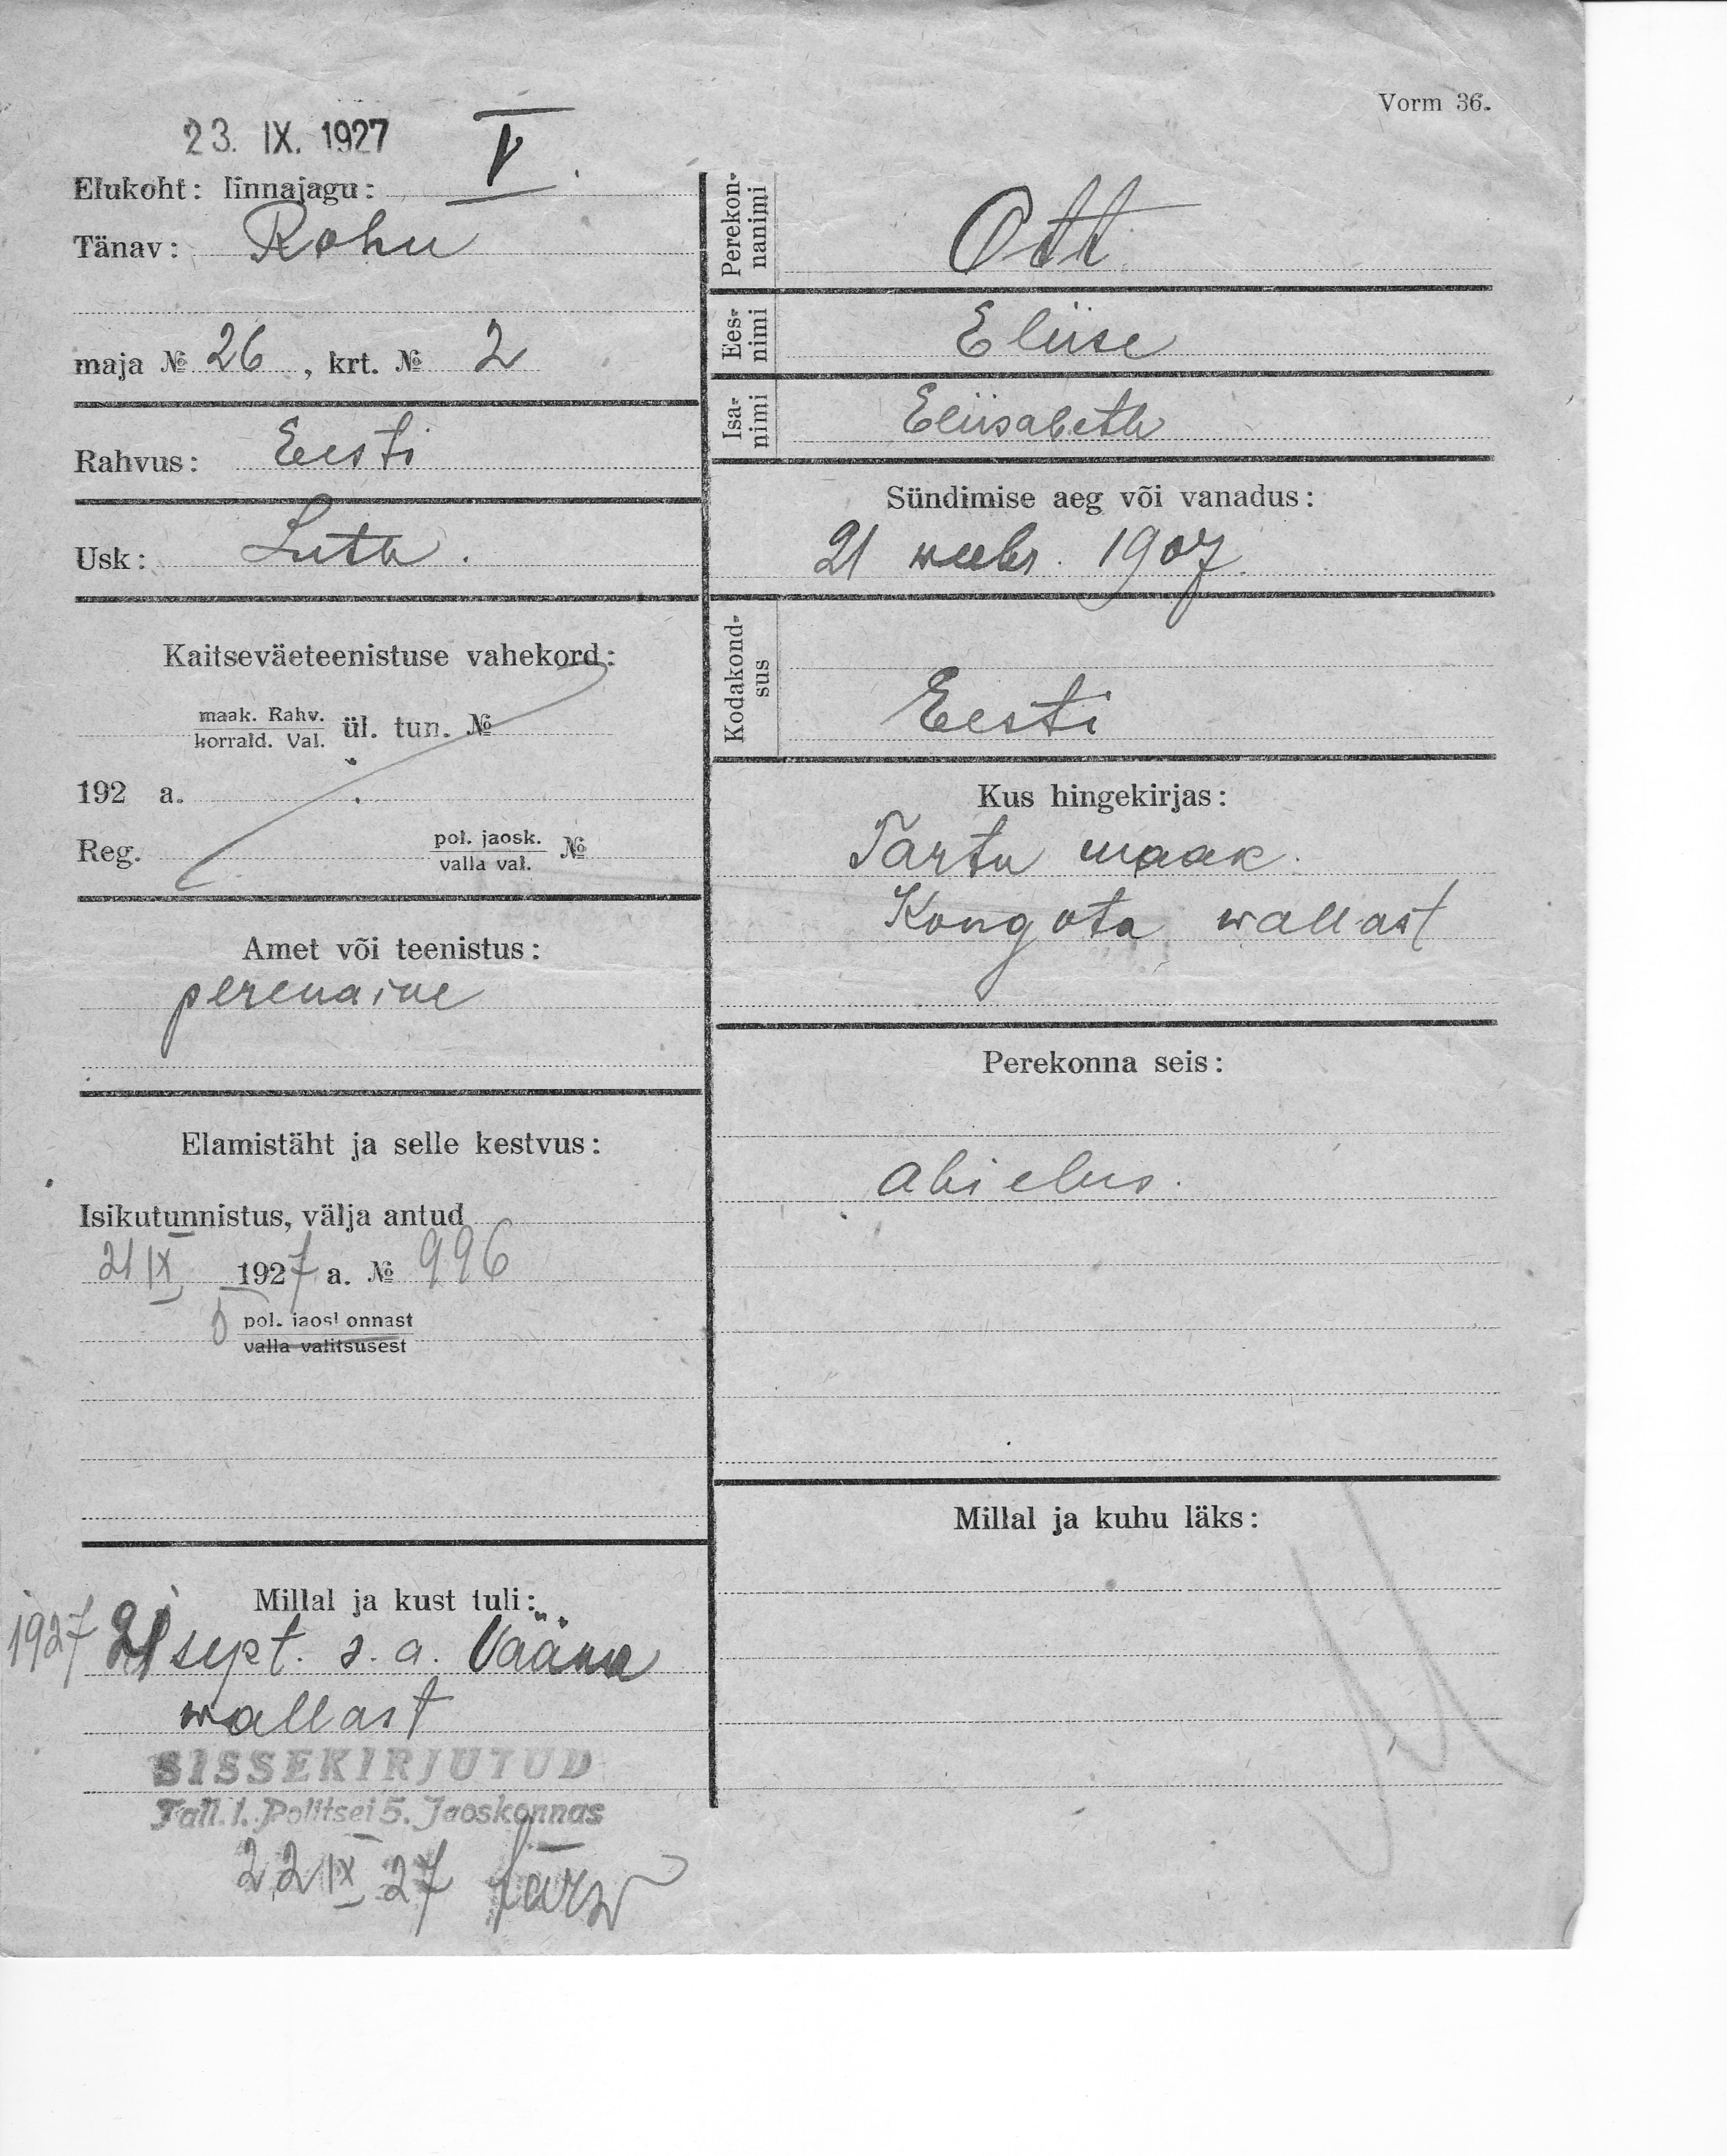 Vorm 36.
23. IX. 1927
Elukoht: linnajagu: V.
Tänav: Rohu
maja № 26, krt. № 2
Rahvus: Eesti
Usk: Luth.
Kaitseväeteenistuse vahekord:
maak. Rahv.
korrald. Val. ül. tun. №
192 a.
Reg. pol. jaosk. №
valla val.
Amet või teenistus:
perenaine
Elamistäht ja selle kestvus:
Isikutunnistus, välja antud
21 IX 1927 a. № 996
5 pol. jaoskonnast
valla valitsusest
Millal ja kust tuli:
1927 21 sept. s. a. Vääna
wallast
SISSEKIRJUTUD
Tall. l. Politsei 5. Jaoskonnas
22 IX 27
Perekon-
nanimi Ott
Ees-
nimi Eliise
Isa-
nimi Eliisabeth
Sündimise aeg või vanadus:
21 weebr. 1907.
Kodakond-
sus Eesti
Kus hingekirjas:
Tartu maak.
Kongota wallast
Perekonna seis:
abielus.
Millal ja kuhu läks: